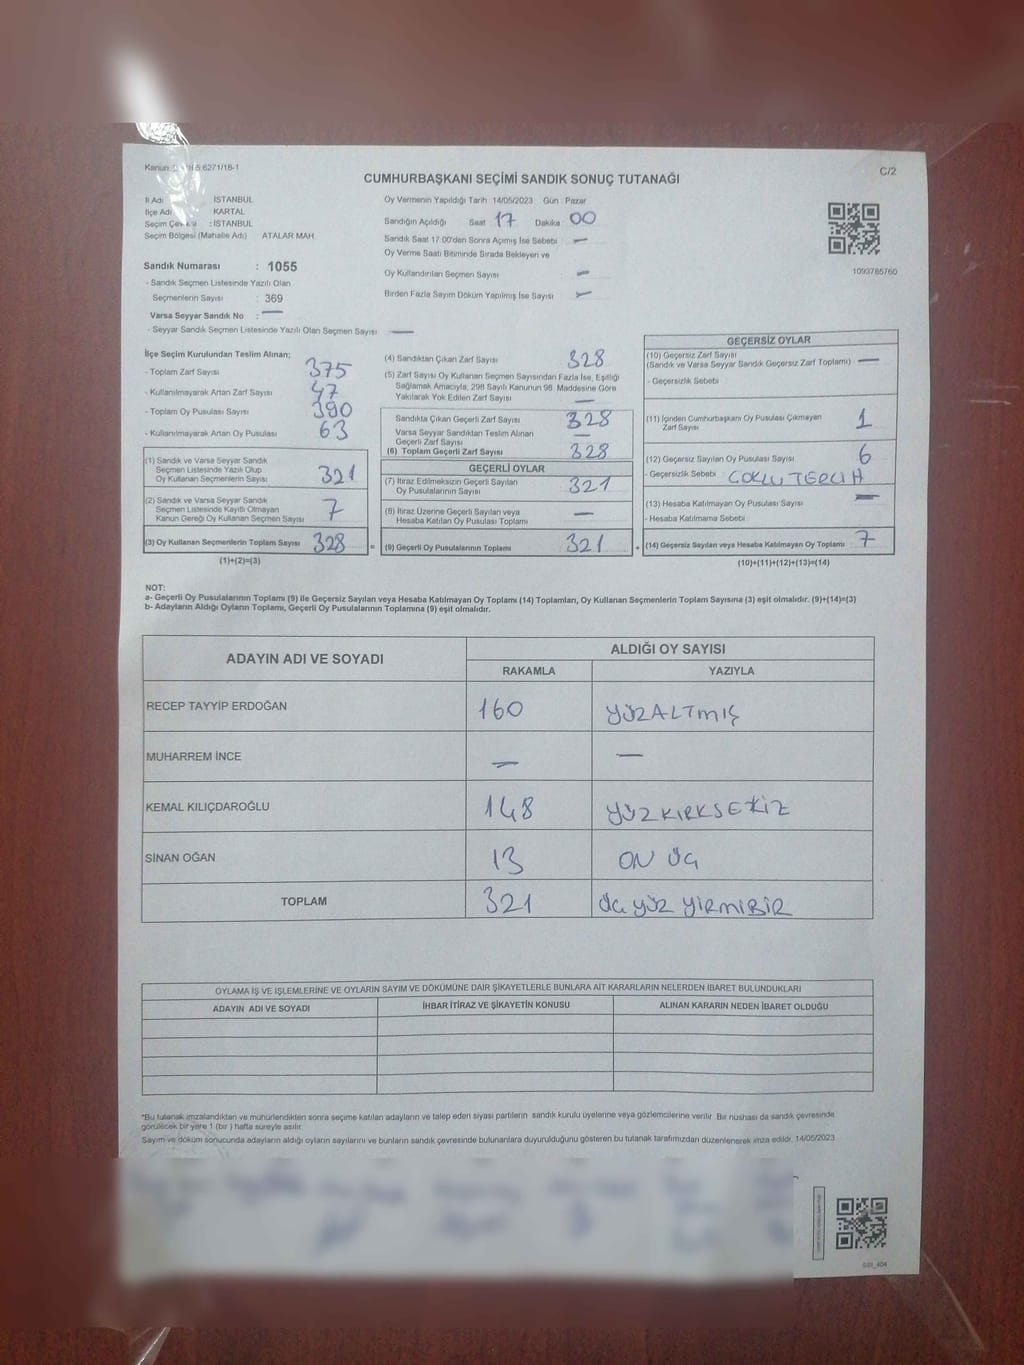 Kanun 6271/18-1
C/2
CUMHURBAŞKANI SEÇİMİ SANDIK SONUÇ TUTANAĞI
İl Adı : İSTANBUL
İlçe Adı KARTAL
Seçim Çevresi : İSTANBUL
Seçim Bölgesi (Mahalle Adı) ATALAR MAH.
Sandık Numarası : 1055
- Sandık Seçmen Listesinde Yazılı Olan
Seçmenlerin Sayısı : 369
Varsa Seyyar Sandık No : —
- Seyyar Sandık Seçmen Listesinde Yazılı Olan Seçmen Sayısı —
Oy Vermenin Yapıldığı Tarih 14/05/2023 Gün Pazar
Sandığın Açıldığı Saat 17 Dakika 00
Sandık Saat 17.00'den Sonra Açılmış İse Sebebi —
Oy Verme Saati Bitiminde Sırada Bekleyen ve
Oy Kullandırılan Seçmen Sayısı —
Birden Fazla Sayım Döküm Yapılmış İse Sayısı —
1093765760
İlçe Seçim Kurulundan Teslim Alınan;
- Toplam Zarf Sayısı 375
- Kullanılmayarak Artan Zarf Sayısı 47
- Toplam Oy Pusulası Sayısı 390
- Kullanılmayarak Artan Oy Pusulası 63
(1) Sandık ve Varsa Seyyar Sandık
Seçmen Listesinde Yazılı Olup
Oy Kullanan Seçmenlerin Sayısı 321
(2) Sandık ve Varsa Seyyar Sandık
Seçmen Listesinde Kayıtlı Olmayan
Kanun Gereği Oy Kullanan Seçmen Sayısı 7
(3) Oy Kullanan Seçmenlerin Toplam Sayısı 328 =
(1)+(2)=(3)
(4) Sandıktan Çıkan Zarf Sayısı 328
(5) Zarf Sayısı Oy Kullanan Seçmen Sayısından Fazla İse, Eşitliği
Sağlamak Amacıyla, 298 Sayılı Kanunun 98. Maddesine Göre
Yakılarak Yok Edilen Zarf Sayısı —
Sandıkta Çıkan Geçerli Zarf Sayısı 328
Varsa Seyyar Sandıktan Teslim Alınan
Geçerli Zarf Sayısı —
(6) Toplam Geçerli Zarf Sayısı 328
GEÇERLİ OYLAR
(7) İtiraz Edilmeksizin Geçerli Sayılan
Oy Pusulalarının Sayısı 321
(8) İtiraz Üzerine Geçerli Sayılan veya
Hesaba Katılan Oy Pusulası Toplamı —
(9) Geçerli Oy Pusulalarının Toplamı 321 +
GEÇERSİZ OYLAR
(10) Geçersiz Zarf Sayısı
(Sandık ve Varsa Seyyar Sandık Geçersiz Zarf Toplamı) —
- Geçersizlik Sebebi
(11) İçinden Cumhurbaşkanı Oy Pusulası Çıkmayan
Zarf Sayısı 1
(12) Geçersiz Sayılan Oy Pusulası Sayısı 6
- Geçersizlik Sebebi ÇOKLU TERCİH
(13) Hesaba Katılmayan Oy Pusulası Sayısı —
- Hesaba Katılmama Sebebi
(14) Geçersiz Sayılan veya Hesaba Katılmayan Oy Toplamı 7
(10)+(11)+(12)+(13)=(14)
NOT:
a- Geçerli Oy Pusulalarının Toplamı (9) ile Geçersiz Sayılan veya Hesaba Katılmayan Oy Toplamı (14) Toplamları, Oy Kullanan Seçmenlerin Toplam Sayısına (3) eşit olmalıdır. (9)+(14)=(3)
b- Adayların Aldığı Oyların Toplamı, Geçerli Oy Pusulalarının Toplamına (9) eşit olmalıdır.
ADAYIN ADI VE SOYADI ALDIĞI OY SAYISI
RAKAMLA YAZIYLA
RECEP TAYYİP ERDOĞAN 160 YÜZALTMIŞ
MUHARREM İNCE — —
KEMAL KILIÇDAROĞLU 148 YÜZKIRKSEKİZ
SİNAN OĞAN 13 ON ÜÇ
TOPLAM 321 ÜÇ YÜZ YİRMİBİR
OYLAMA İŞ VE İŞLEMLERİNE VE OYLARIN SAYIM VE DÖKÜMÜNE DAİR ŞİKAYETLERLE BUNLARA AİT KARARLARIN NELERDEN İBARET BULUNDUKLARI
ADAYIN ADI VE SOYADI İHBAR İTİRAZ VE ŞİKAYETİN KONUSU ALINAN KARARIN NEDEN İBARET OLDUĞU
*Bu tutanak imzalandıktan ve mühürlendikten sonra seçime katılan adayların ve talep eden siyasi partilerin sandık kurulu üyelerine veya gözlemcilerine verilir. Bir nüshası da sandık çevresinde
görülecek bir yere 1 (bir) hafta süreyle asılır.
Sayım ve döküm sonucunda adayların aldığı oyların sayılarını ve bunların sandık çevresinde bulunanlara duyurulduğunu gösteren bu tutanak tarafımızdan düzenlenerek imza edildi. 14/05/2023